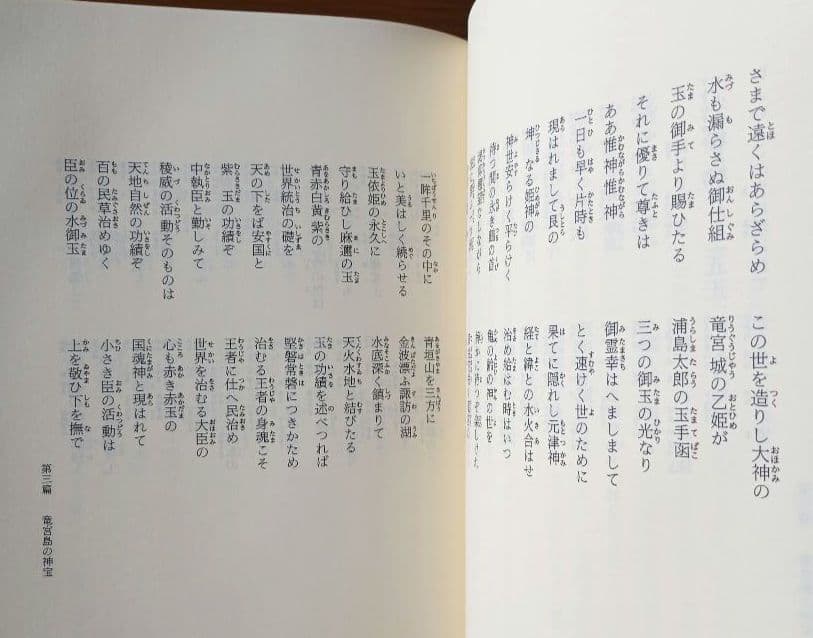 さまで遠くはあらざらめ　この世を造りし大神の
水も漏らさぬ御仕組　竜宮城の乙姫が
玉の御手より賜ひたる　浦島太郎の玉手函
それに優りて尊きは　三つの御玉の光なり
ああ惟神惟神　御霊幸はへましまして
一日も早く片時も　とく速けく世のために
現はれまして艮の　果てに隠れし元津神
坤なる姫神の　経と緯との水火合はせ
神世安らけく平らけく　治め給はむ時はいつ
待つ間の永き鶴の首　亀の齢の神の世を
一眸千里のその中に　青垣山を三方に
いと美はしく繞らせる　金波漂ふ諏訪の湖
玉依姫の永久に　水底深く鎮まりて
守り給ひし麻邇の玉　天火水地と結びたる
青赤白黄紫の　玉の功績を述べつれば
世界統治の礎を　堅磐常磐につきかため
天の下をば安国と　治むる王者の身魂こそ
紫玉の功績ぞ　王者に仕へ民治め
中執臣と勤しみて　世界を治むる大臣の
稜威の活動そのものは　心も赤き赤玉の
天地自然の功績ぞ　国魂神と現はれて
百の民草治めゆく　小さき臣の活動は
臣の位の水御玉　上を敬ひ下を撫で
第三篇　竜宮島の神宝